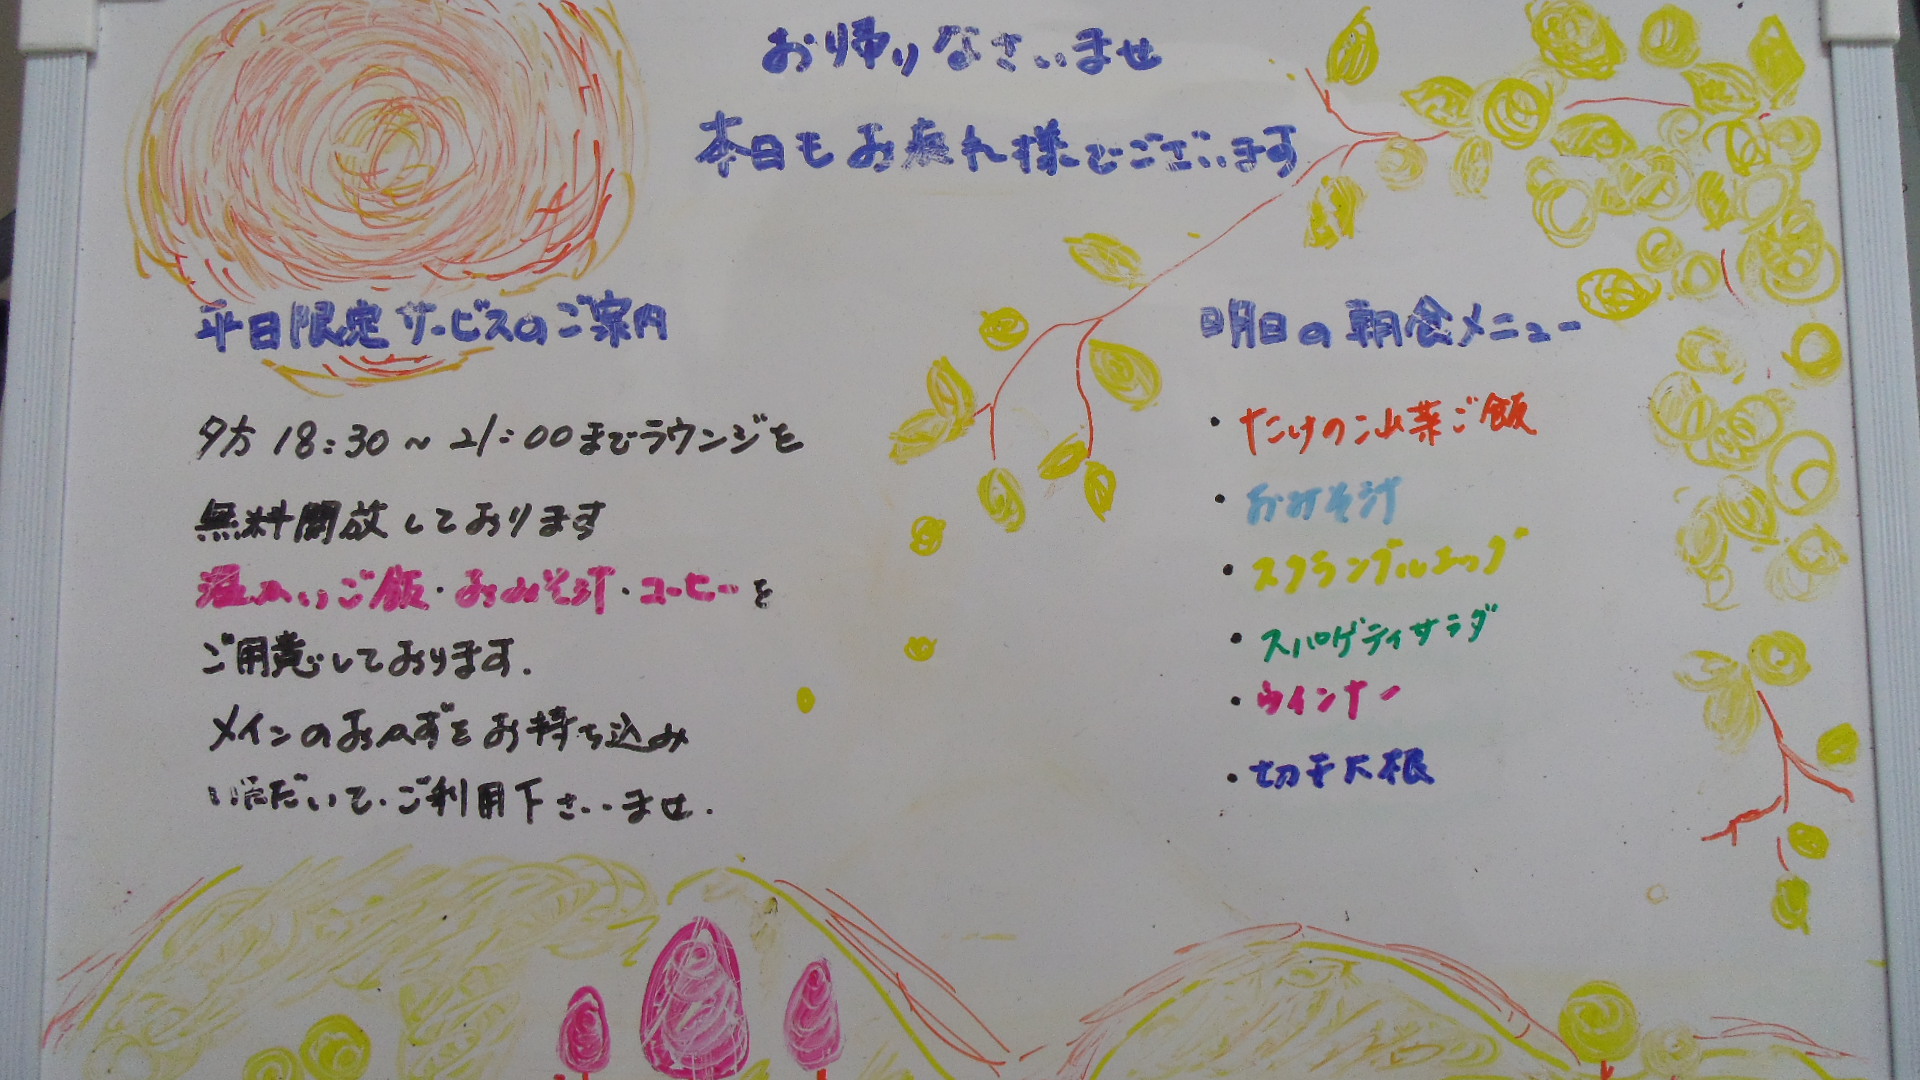 お帰りなさいませ
本日もお疲れ様でございます
平日限定サービスのご案内
夕方 18:30~21:00までラウンジを
無料開放しております
温かいご飯・おみそ汁・コーヒーを
ご用意しております.
メインのおかずをお持ち込み
いただいて.ご利用下さいませ.
明日の朝食メニュー
・たけのこ山菜ご飯
・おみそ汁
・スクランブルエッグ
・スパゲティサラダ
・ウインナー
・切干大根